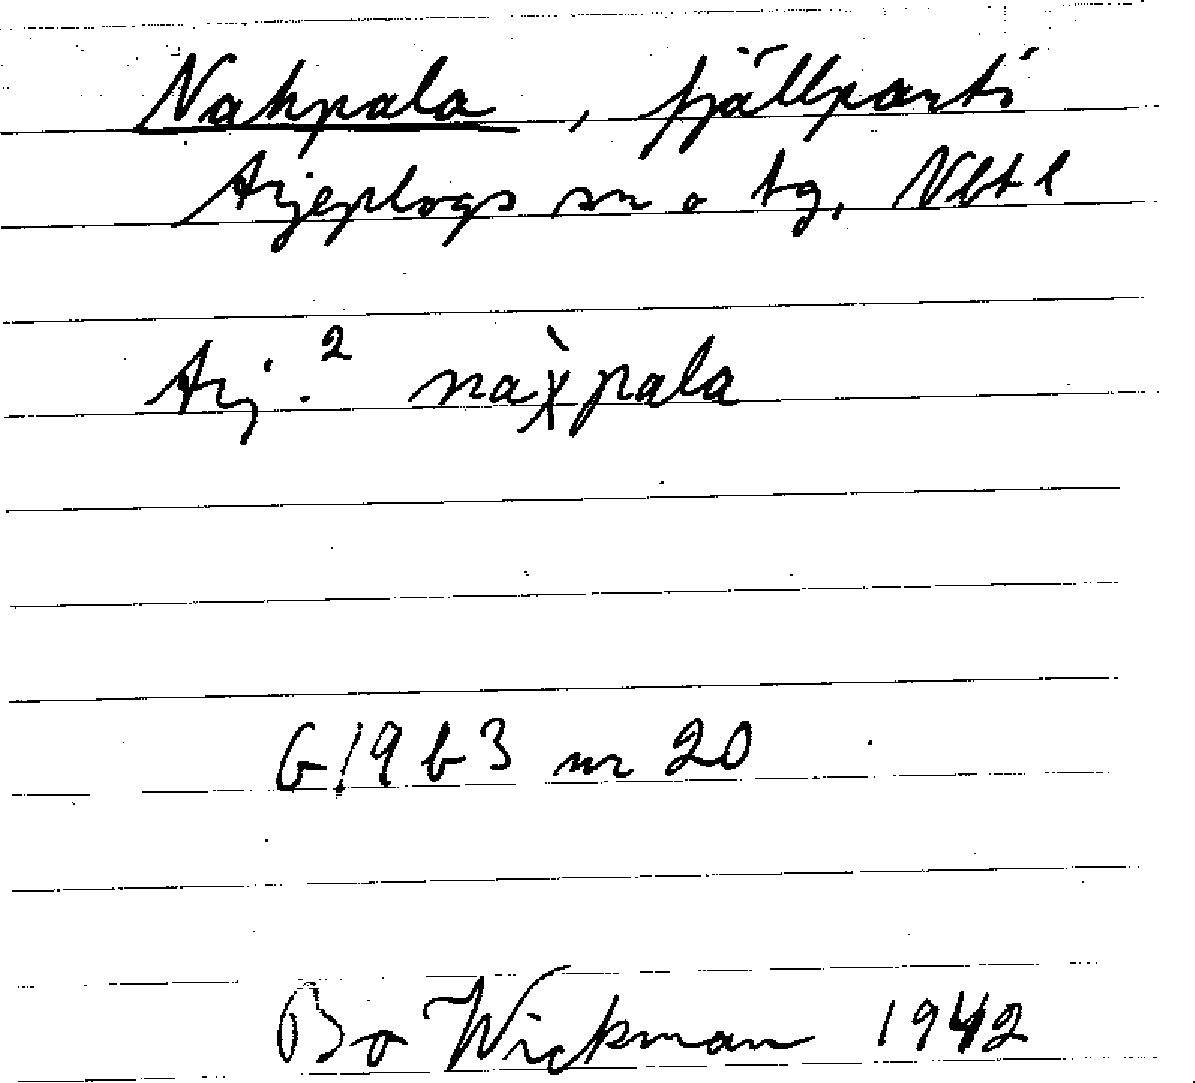 Nahpala, fjällparti
Arjeplogs sn o tg, Nbtl
Arj.² nax̀pala
G19b3 nr 20
Bo Wickman 1942